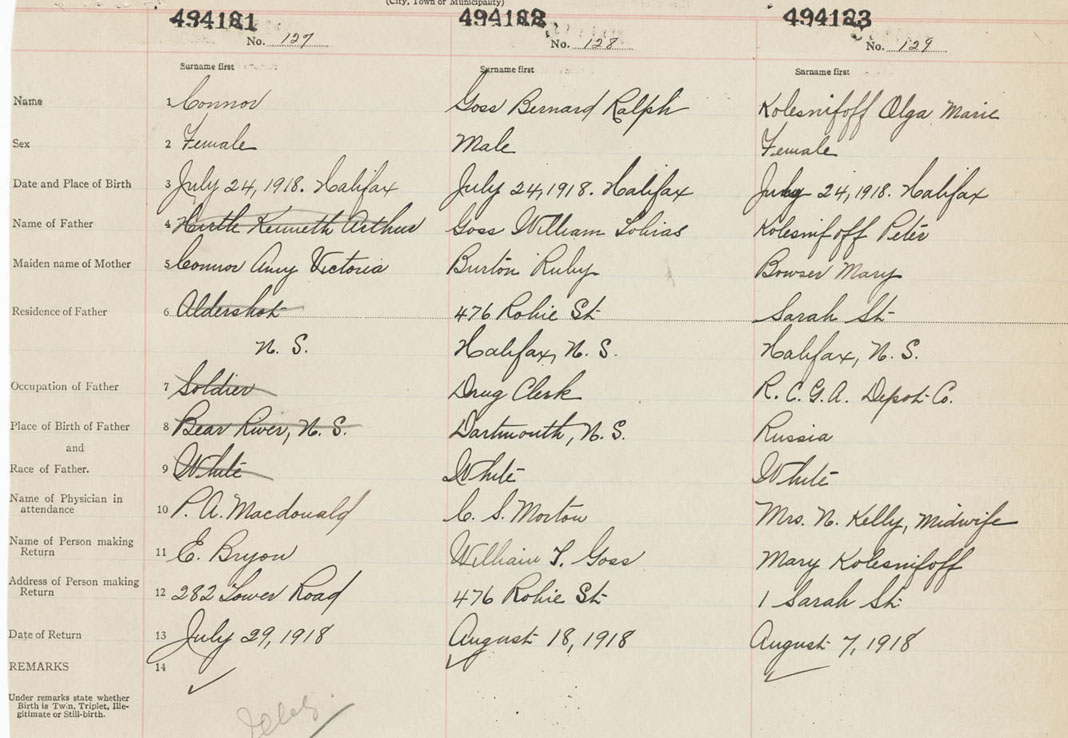 (City, Town or Municipality)
494181 494182 494183
No. 127 No. 128 No. 129
Surname first Surname first Surname first
Name 1 Connor Goss Bernard Ralph Kolesnifoff Olga Marie
Sex 2 Female Male Female
Date and Place of Birth 3 July 24, 1918. Halifax July 24, 1918. Halifax July 24, 1918. Halifax
Name of Father 4 Hirtle Kenneth Arthur Goss William Tobias Kolesnifoff Peter
Maiden name of Mother 5 Connor Amy Victoria Burton Ruby Bowser Mary
Residence of Father 6 Aldershot 476 Robie St. Sarah St.
N. S. Halifax, N. S. Halifax, N. S.
Occupation of Father 7 Soldier Drug Clerk R. C. G. A. Depot Co.
Place of Birth of Father 8 Bear River, N. S. Dartmouth, N. S. Russia
and
Race of Father. 9 White White White
Name of Physician in
attendance 10 P. A. Macdonald C. S. Morton Mrs. N. Kelly, Midwife
Name of Person making
Return 11 E. Bryon William T. Goss Mary Kolesnifoff
Address of Person making
Return 12 282 Tower Road 476 Robie St. 1 Sarah St.
Date of Return 13 July 29, 1918 August 18, 1918 August 7, 1918
REMARKS 14
Under remarks state whether
Birth is Twin, Triplet, Ille-
gitimate or Still-birth.